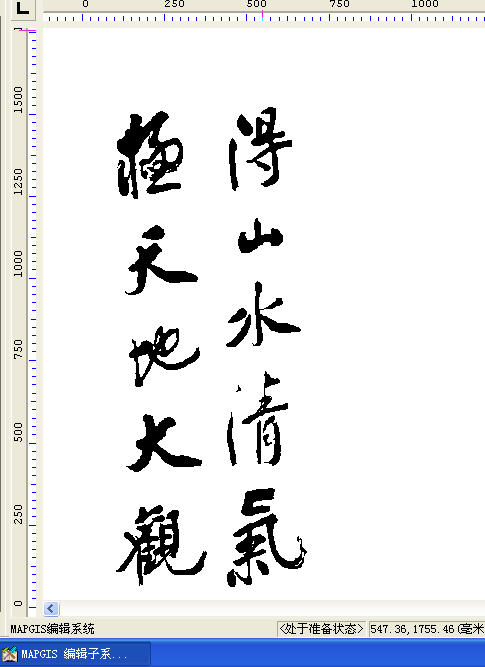 0 250 500 750 1000
1500
1250
1000
750
500
250
0
得山水清氣
極天地大觀
MAPGIS编辑系统 <处于准备状态> 547.36,1755.46(毫米
MAPGIS 编辑子系...